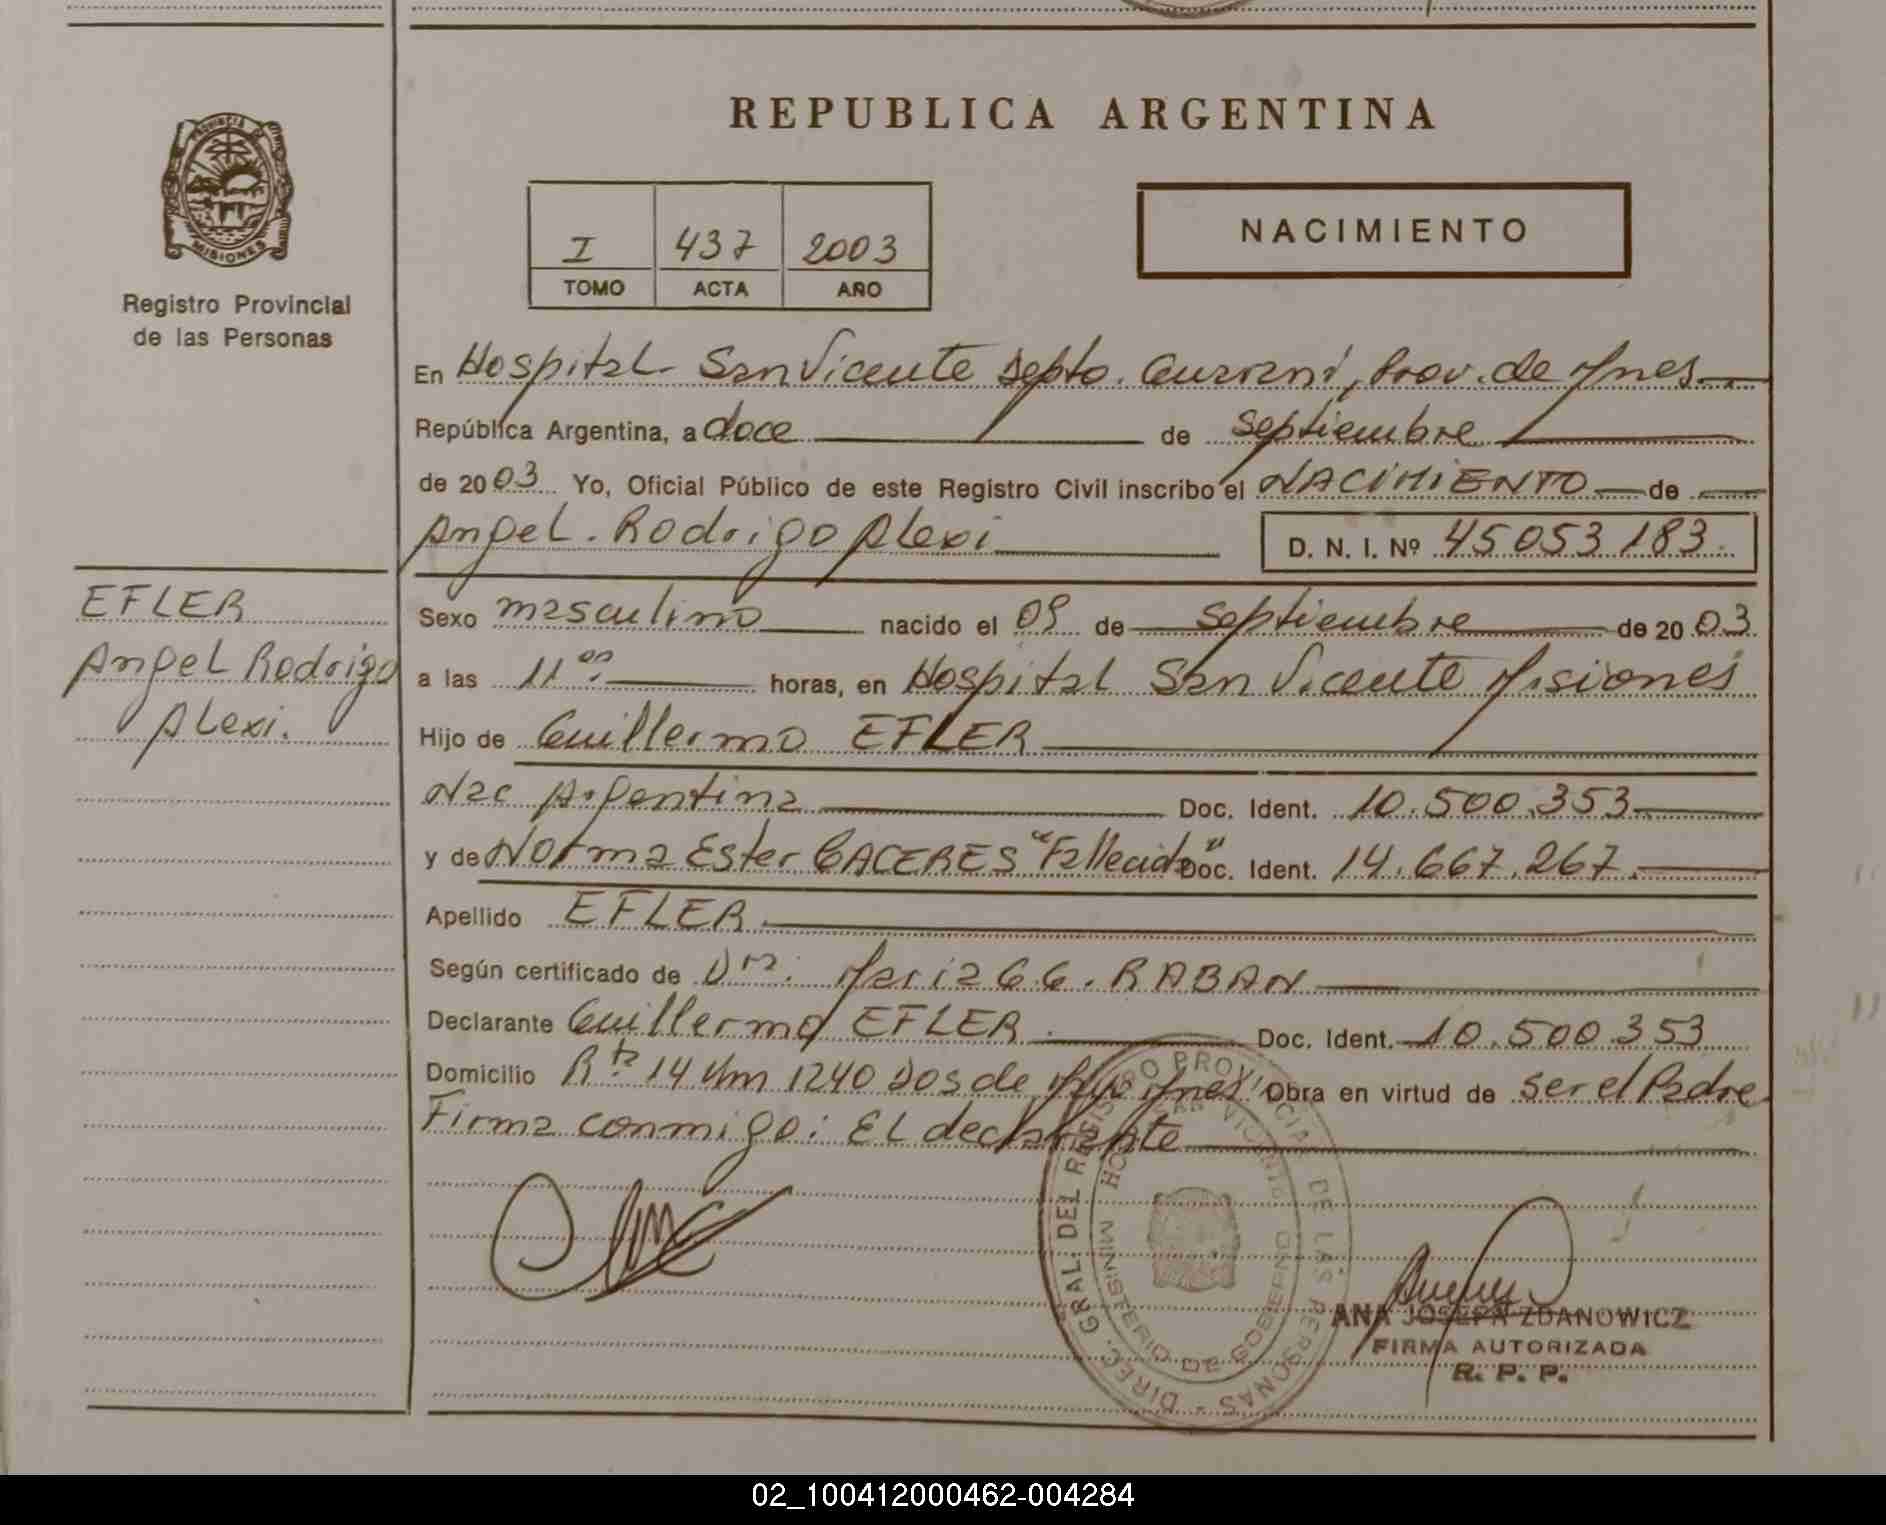 PROVINCIA DE
MISIONES
Registro Provincial
de las Personas
REPUBLICA ARGENTINA
I 437 2003
TOMO ACTA AÑO
NACIMIENTO
En Hospital San Vicente Depto. Guarani, Prov. de Mnes.
República Argentina, a doce de septiembre
de 2003 Yo, Oficial Público de este Registro Civil inscribo el NACIMIENTO de
Angel. Rodrigo Alexi D. N. I. Nº 45053183.
EFLER
Angel Rodrigo
Alexi.
Sexo masculino nacido el 09 de septiembre de 2003
a las 11 00 horas, en Hospital San Vicente Misiones
Hijo de Guillermo EFLER
Nac Argentina Doc. Ident. 10.500.353
y de Norma Ester CACERES "Fallecida" Doc. Ident. 14.667.267.
Apellido EFLER
Según certificado de Dra. Maria G. G. RABAN
Declarante Guillermo EFLER Doc. Ident. 10.500353
Domicilio Rta 14 Km 1240 Dos de Mnes Obra en virtud de ser el Padre
Firma conmigo: El declarante
DIREC. GRAL. DEL REGISTRO PROVINCIAL DE LAS PERSONAS
HOSP. SAN VICENTE
MINISTERIO DE GOBIERNO
ANA JOSEFA ZDANOWICZ
FIRMA AUTORIZADA
R. P. P.
02_100412000462-004284